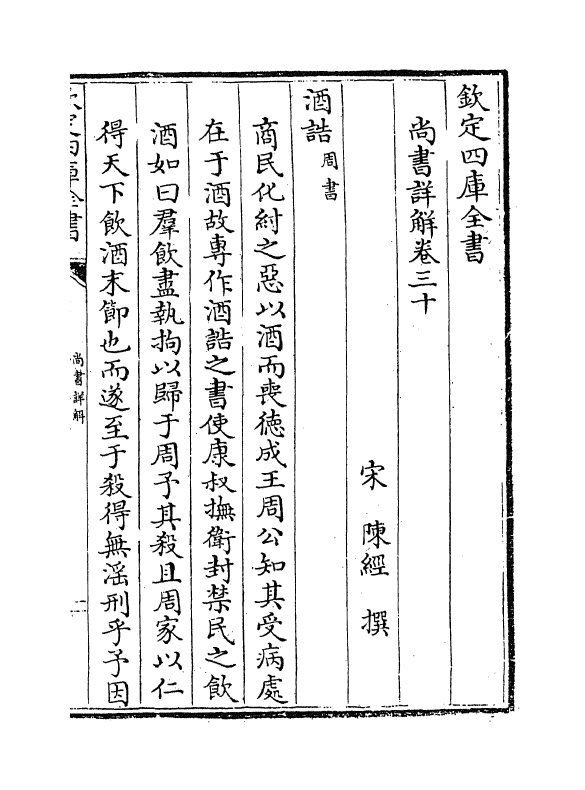 欽定四庫全書
尚書詳解卷三十
宋 陳經 撰
酒誥周書
商民化紂之惡以酒而喪徳成王周公知其受病處
在于酒故專作酒誥之書使康叔撫衛封禁民之飲
酒如曰羣飲盡執拘以歸于周予其殺且周家以仁
得天下飲酒末節也而遂至于殺得無淫刑乎予因
欽定四庫全書
尚書詳解